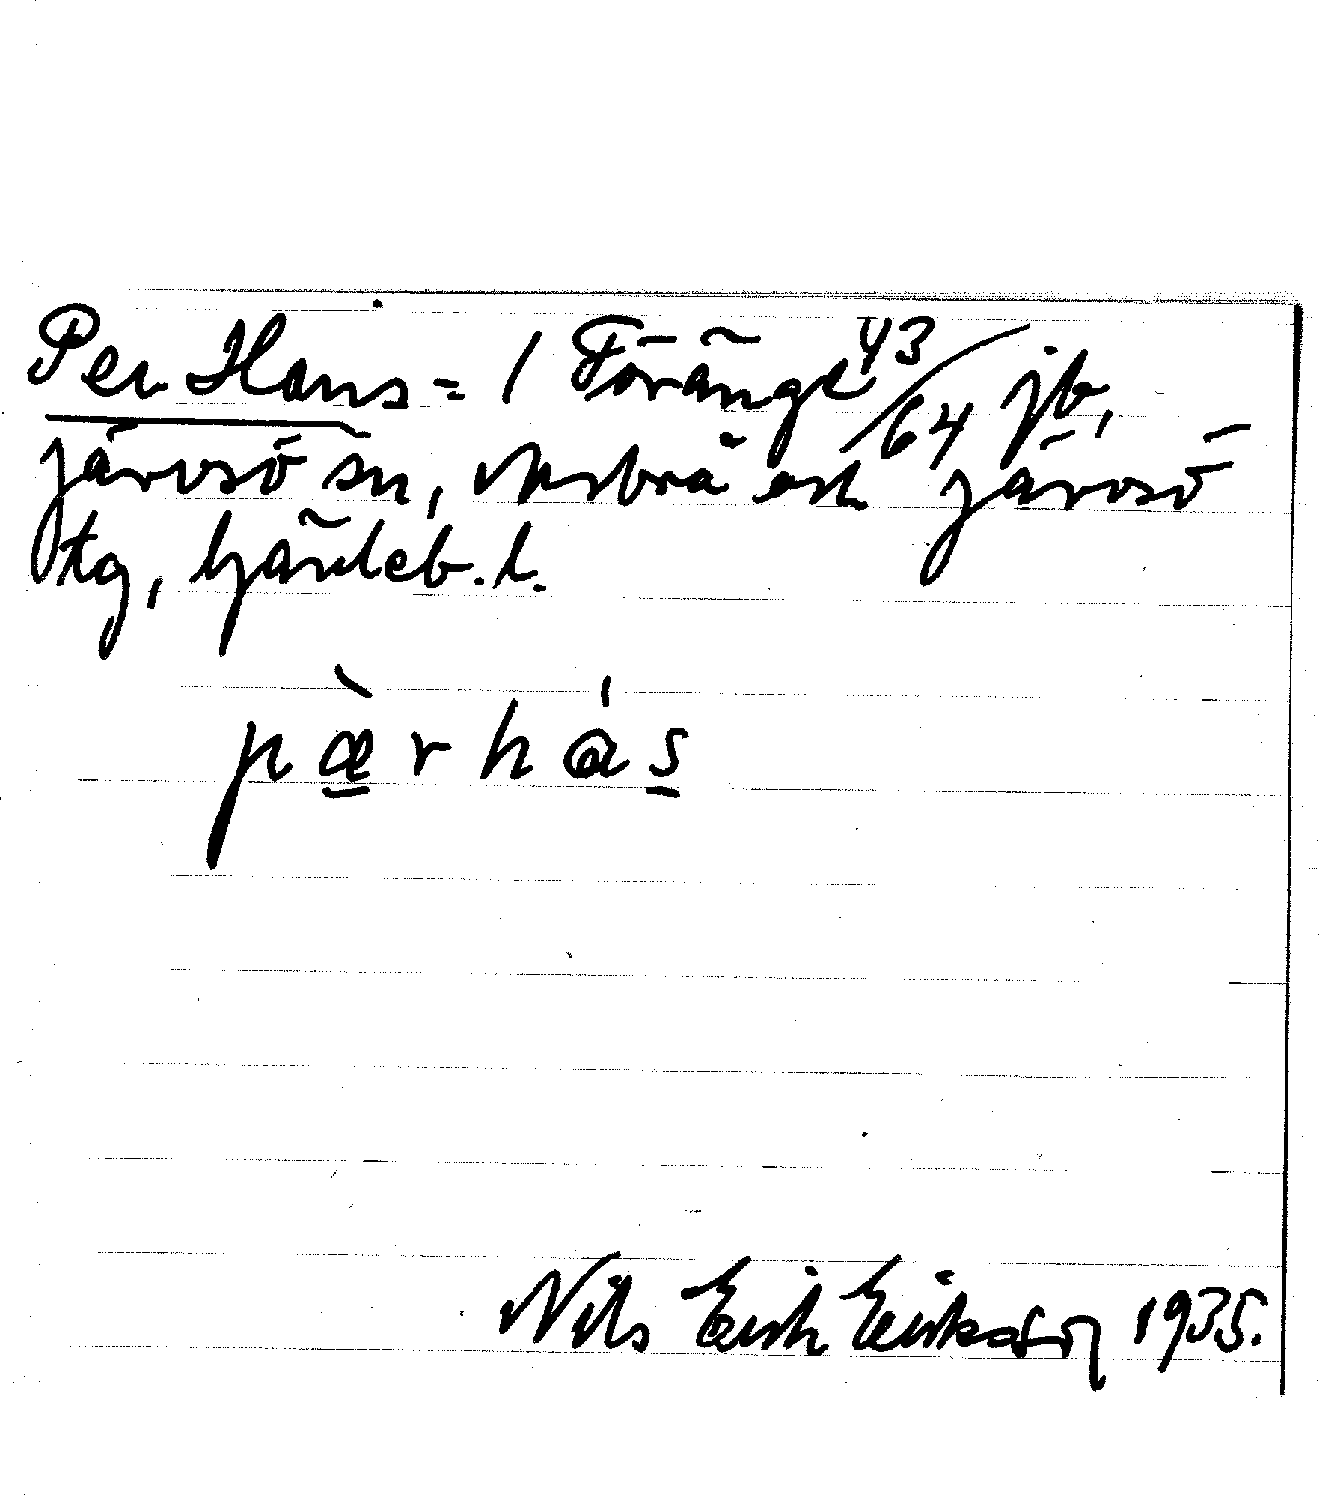 Per Hans = / Föränge 43/64 jb,
Järvsö sn, Arbrå och Järvsö
tg, Gävleb. l.
pær hɑs
Nils Erik Eriksson 1935.